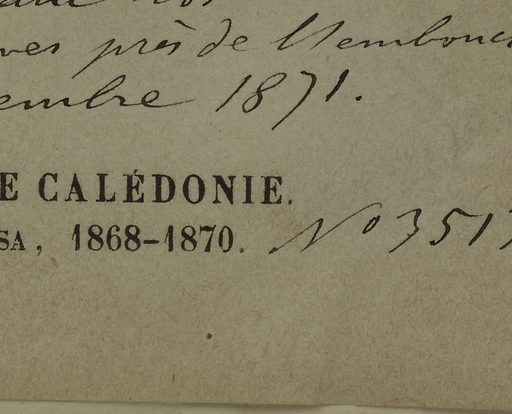 près de l'embouc
embre 1871.
E CALÉDONIE.
SA, 1868-1870. No 3517